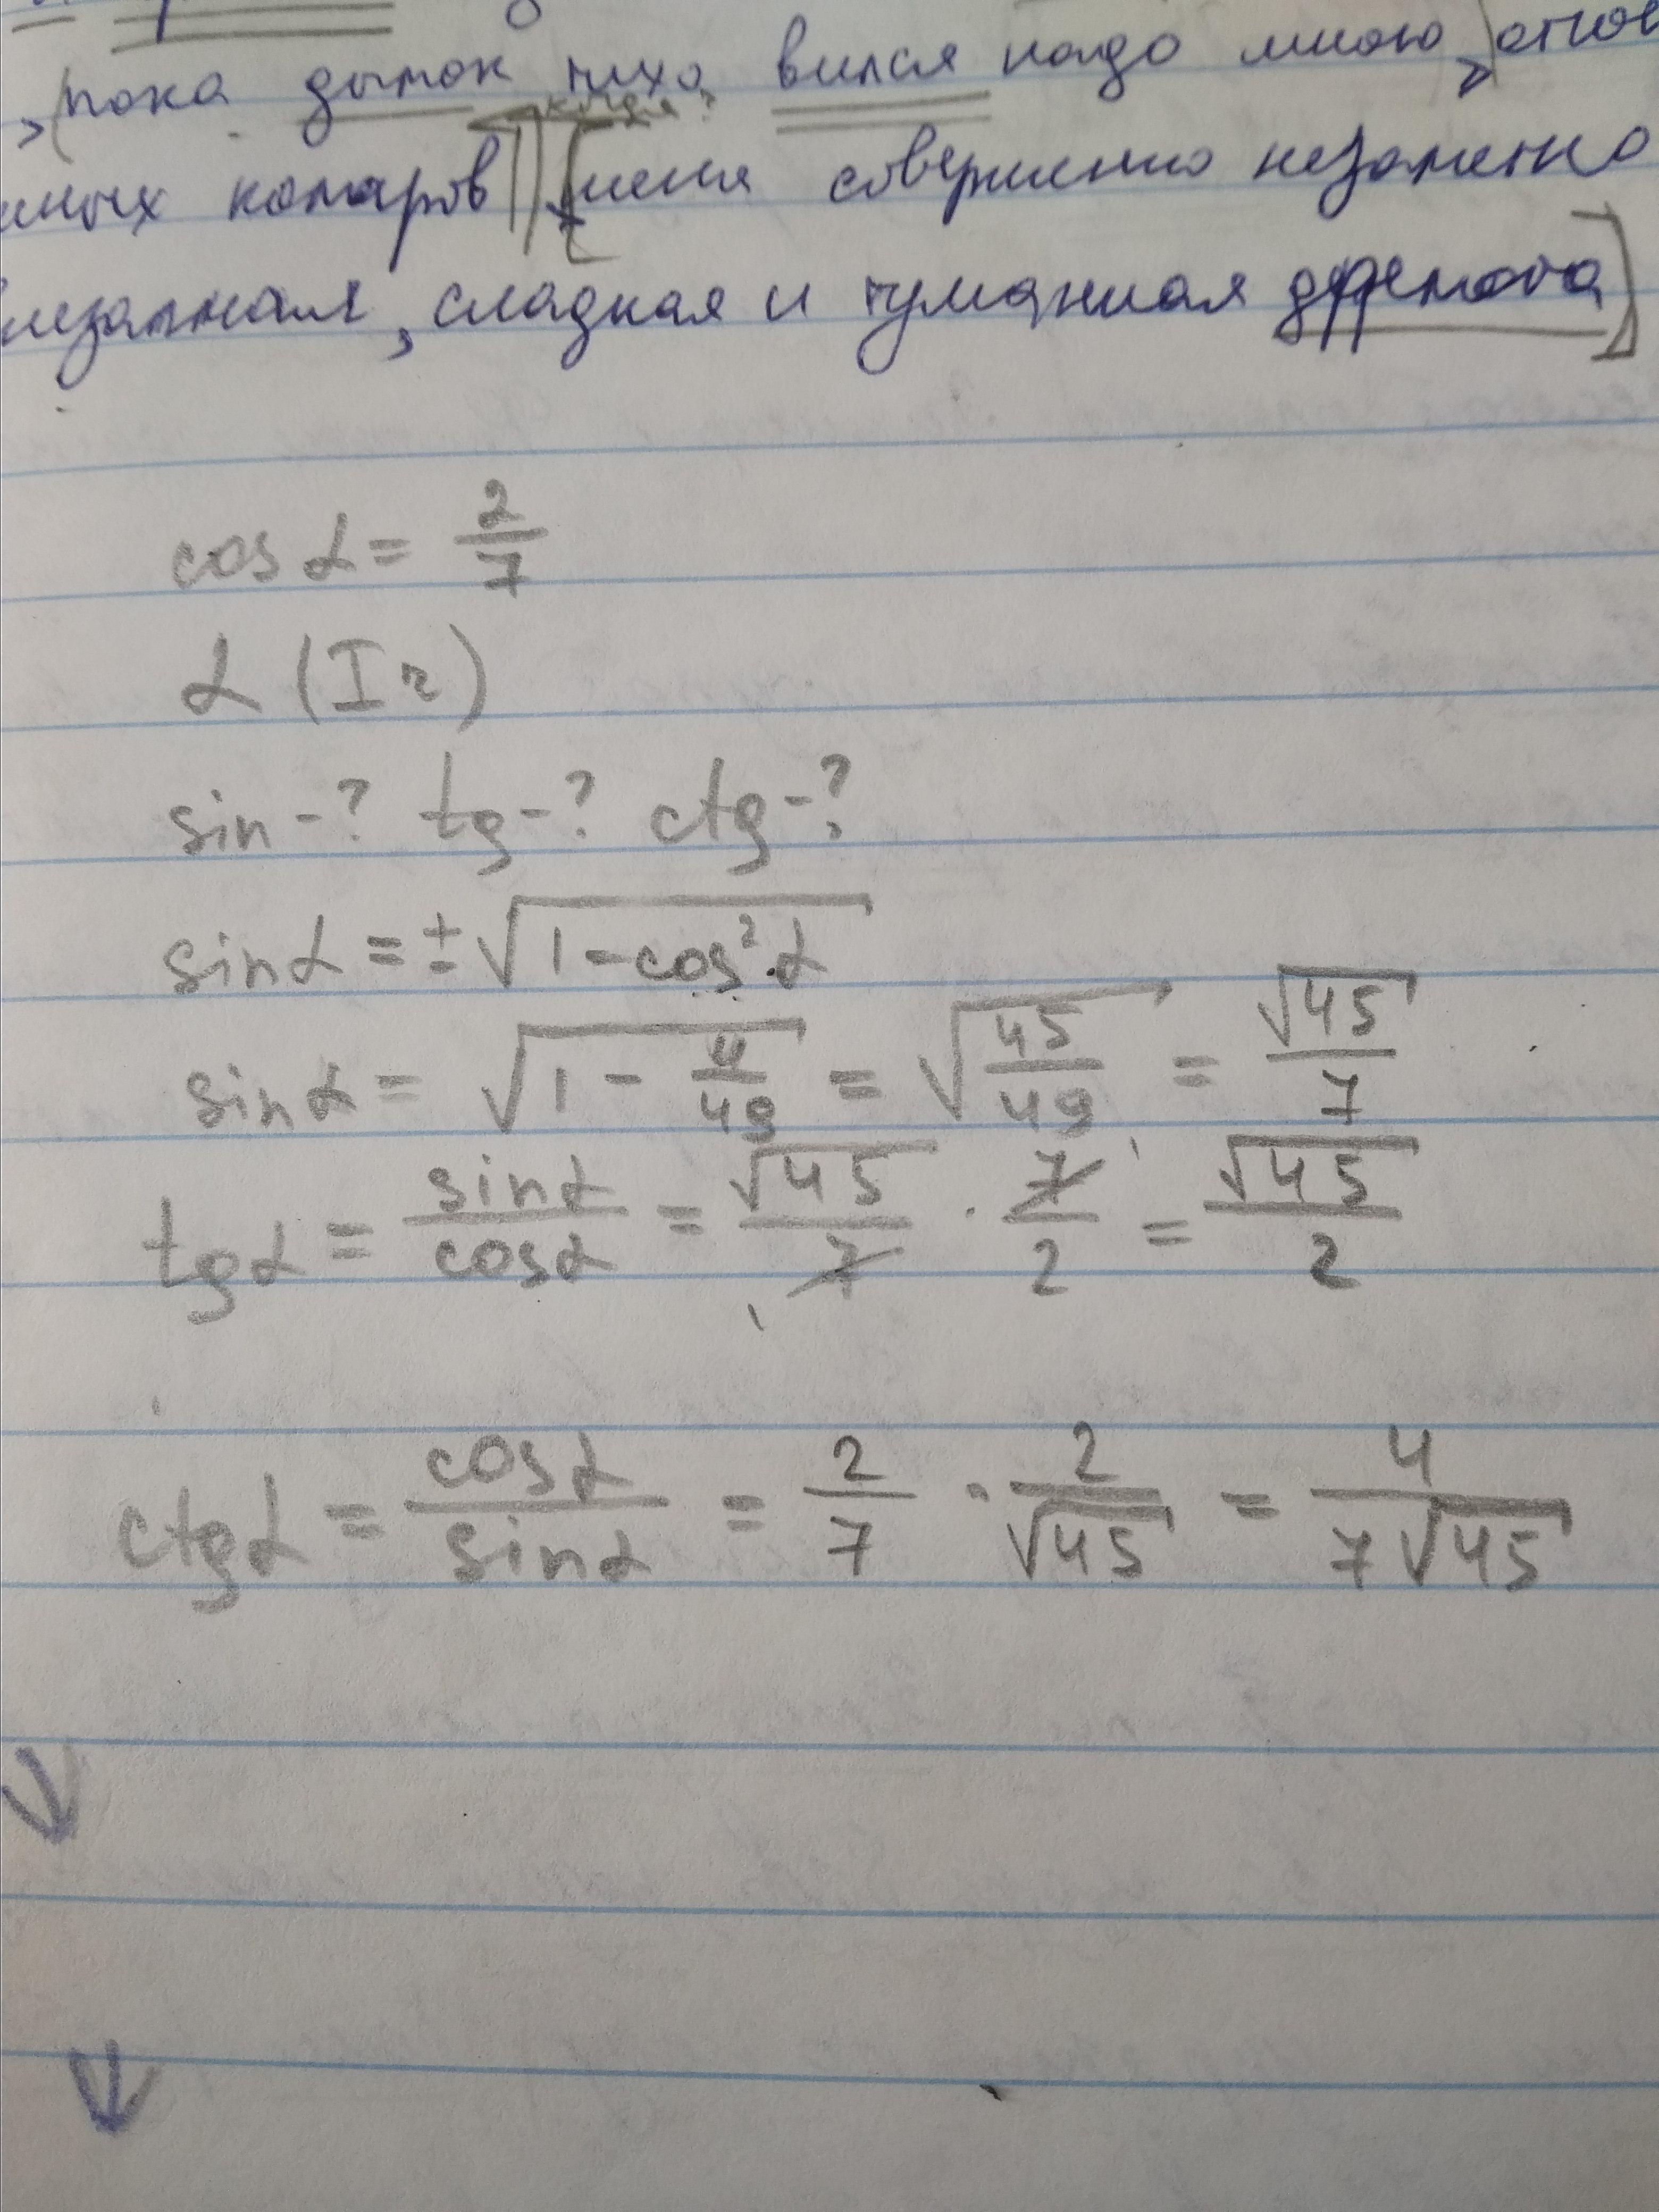 , (пока дымок тихо вился надо мною,) отгон
ных комаров]
когда?
[меня совершенно незаметно
внезапная, сладкая и туманная дремота]
cos α = 2/7
α (I ч)
sin - ? tg - ? ctg - ?
sin α = ± √(1 - cos² α)
sin α = √(1 - 4/49) = √(45/49) = √45/7
tg α = sin α/cos α = √45/7 · 7/2 = √45/2
ctg α = cos α/sin α = 2/7 · 2/√45 = 4/(7√45)